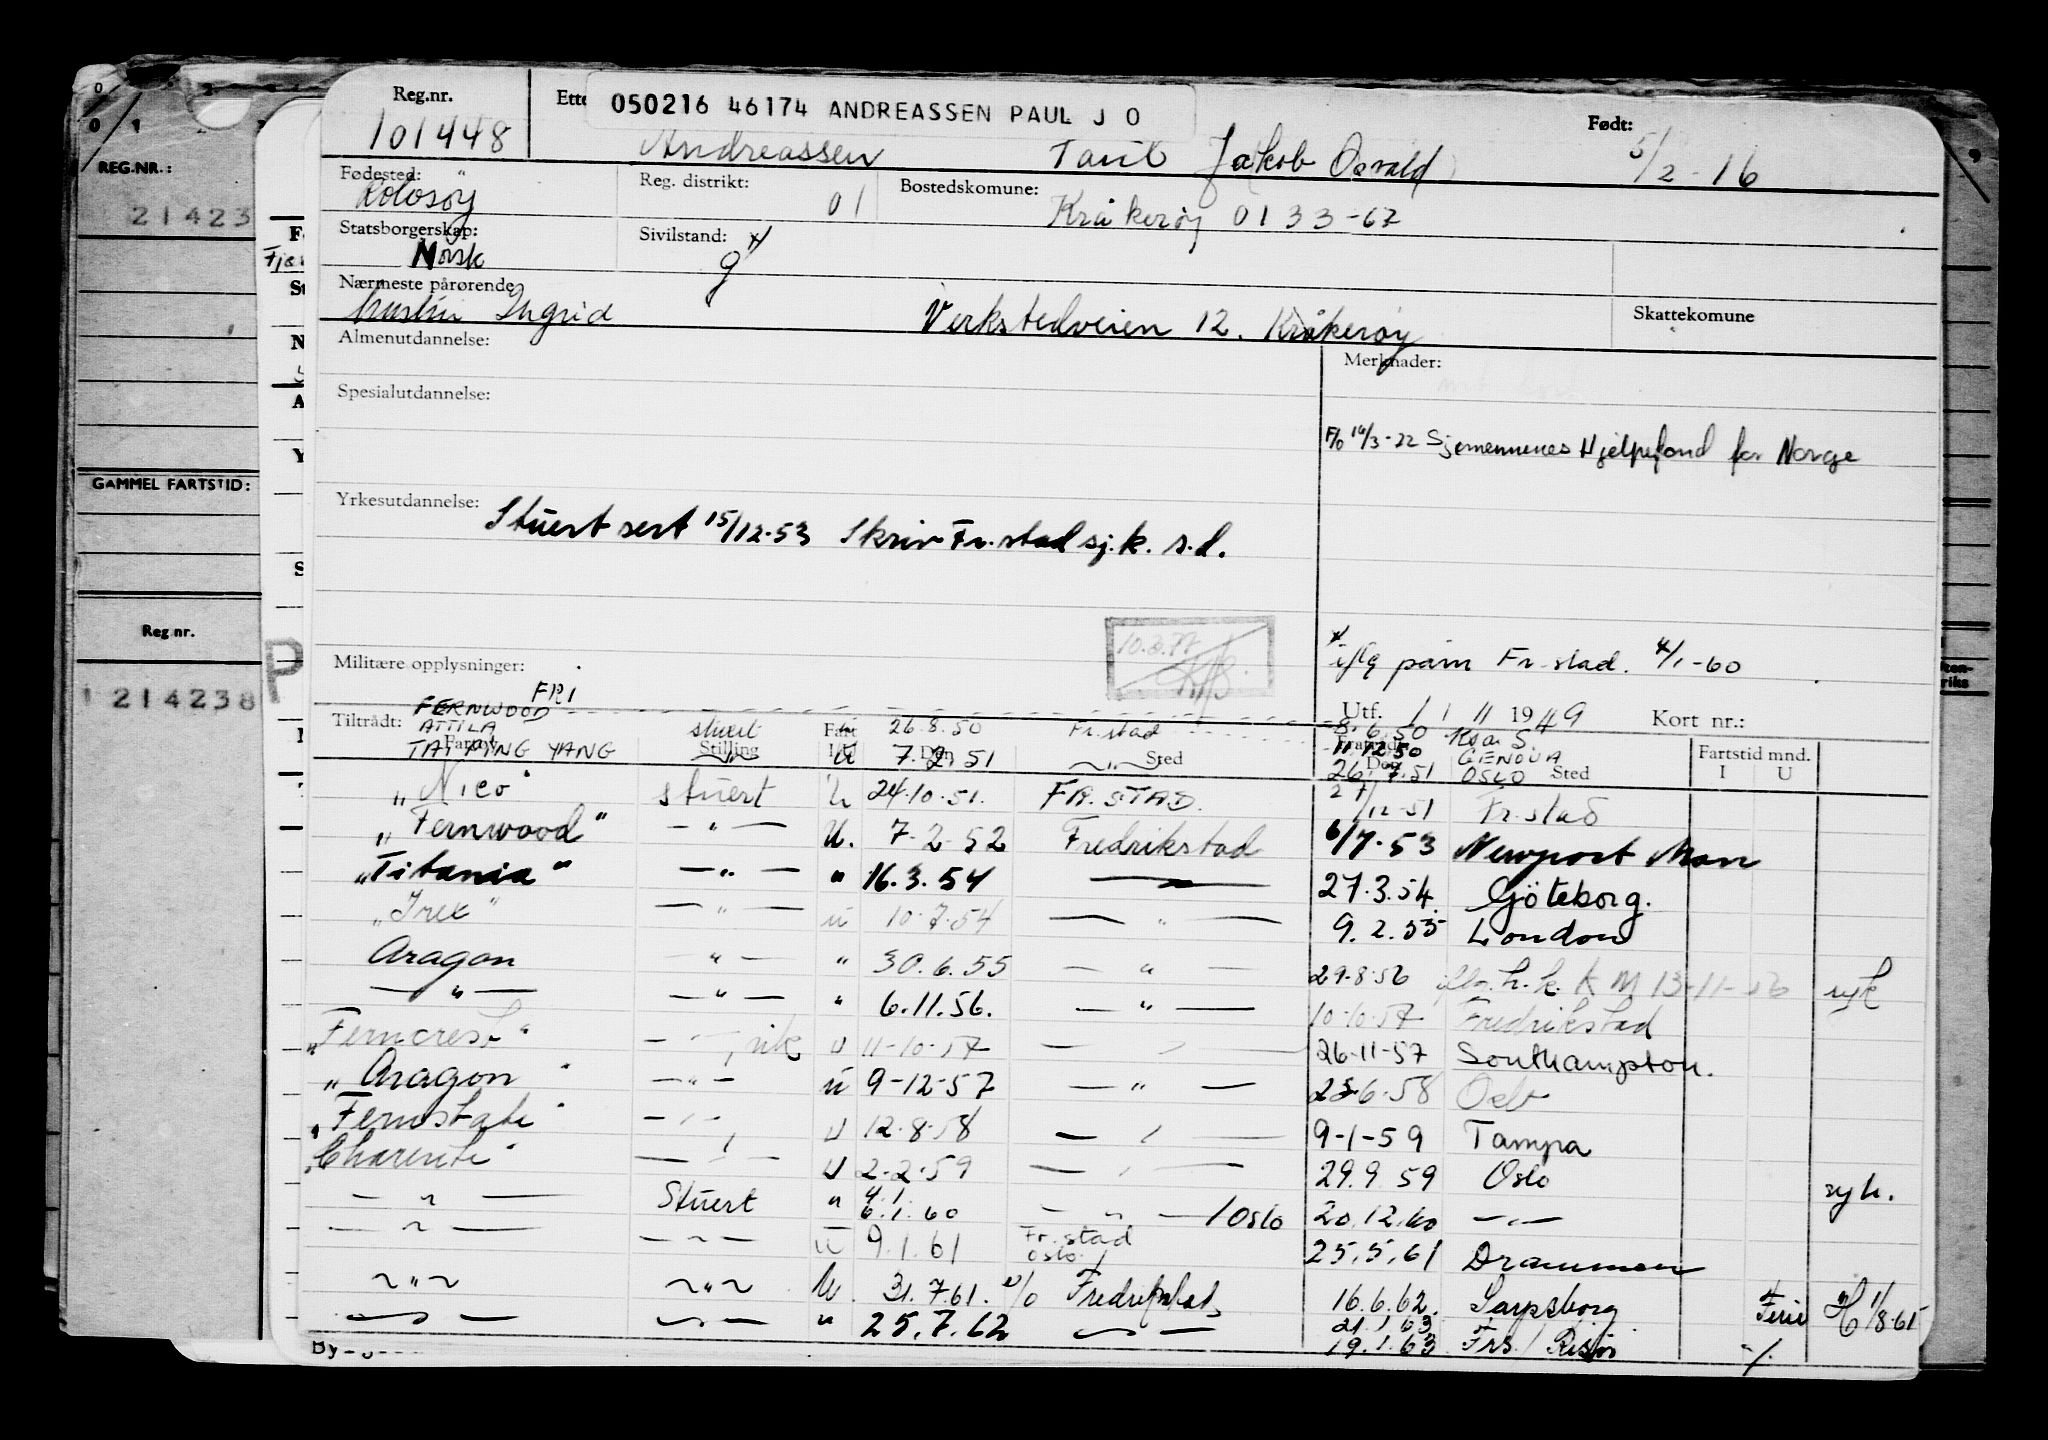 REG.NR.:
21423
GAMMEL FARTSTID:
Reg nr.
1 214238
Reg.nr. Ette 050216 46174 ANDREASSEN PAUL J O Født:
101448 Andreassen Paul Jakob Osvald 5/2-16
Fødested: Reg. distrikt: 01 Bostedskomune:
Rolvsøy Kråkerøy 0133-67
Statsborgerskap: Sivilstand: x/
Norsk g
Nærmeste pårørende Skattekomune
Hustru Ingrid Verkstedveien 12. Kråkerøy
Almenutdannelse: Merknader:
Spesialutdannelse:
F/o 14/3-22 Sjømennenes Hjelpefond for Norge
Yrkesutdannelse: Stuert sert 15/12-53 Skriv Fr.stad sj.k. s.d.
10.3.77
x/ i flg påm Fr-stad. 4/1-60
Militære opplysninger:
FRI
Utf. 1 / 11 1949 Kort nr.:
Tiltrådt: Fratrådt Fartstid mnd.
Fartøy Stilling Fart Den Sted Den Sted I U
FERNWOOD 8.6.50
ATTILA stuert u 26.8.50 Fr.stad 11.12.50 GENOVA
TAI PING YANG — " — U 7.2.51 — " — 26.7.51 OSLO
„Nico" stuert U 24.10.51. FR.STAD. 27/12-51 Fr.stad
„Fernwood" — " — U. 7-2-52 Fredrikstad 6/7-53 Newport Mon
„Titania" — " — " 16.3.54 — " — 27.3.54. Göteborg.
„Irex" — " — u 10.7.54 — " — 9.2.55 London
Aragon — " — " 30.6.55 — " — 29-8-56 13-11-56 syk
— " — — " — " 6.11.56. — " — 10-10-57 Fredrikstad
„Ferncrest" — " — vik u 11-10-57 — " — 26-11-57 Southampton.
„Aragon" — " — u 9-12-57 — " — 23-6-58 Oslo
„Fernstate" — " — u 12-8-58 — " — 9-1-59 Tampa
„Charente" — " — u 2-2-59 — " — 29.9 59 Oslo syk.
— " — Stuert " 4.1. 6.1.60 — " — / Oslo 20.12.60 — " —
— " — — " — u 9.1.61 Fr.stad Oslo 25.5.61 Drammen
— " — — " — U. 31.7.61. Fredrikstad 16.6.62. Sarpsborg Ferie H 1/8-61
— " — — " — " 25.7.62 — " — 21.1.63
19.1.63 Frs / Risør